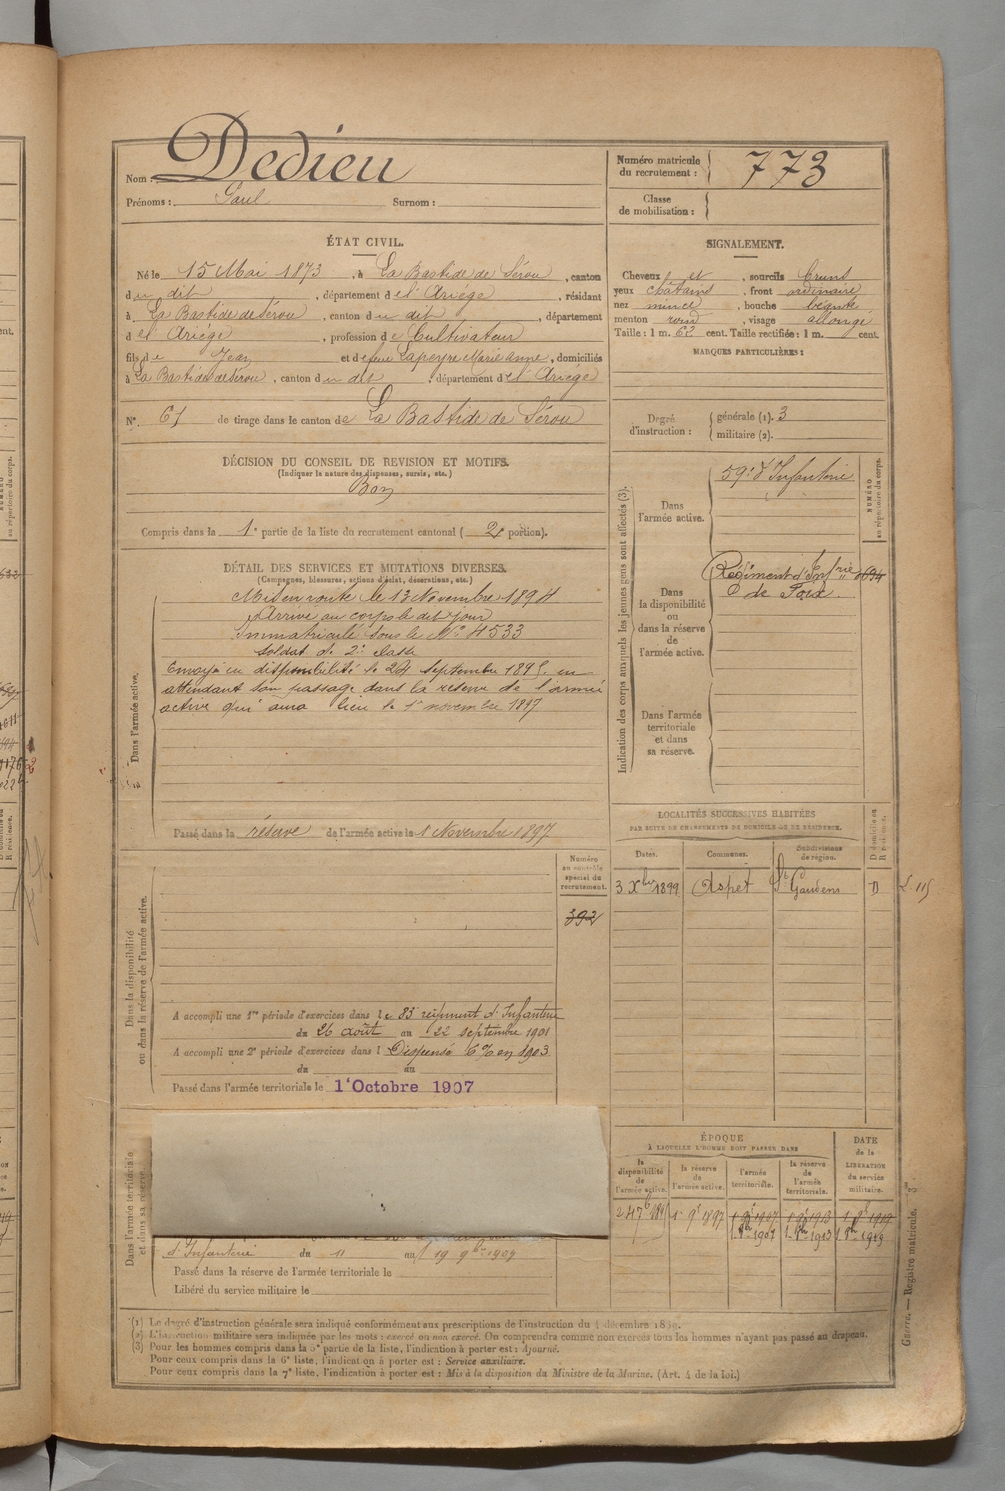 Nom : Dedieu
Prénoms : Paul Surnom :
Numéro matricule du recrutement : 773
Classe de mobilisation :
ÉTAT CIVIL.
Né le 15 Mai 1873, à La Bastide de Sérou, canton
du dit, département de l'Ariège, résidant
à La Bastide de Sérou, canton du dit, département
de l'Ariège, profession de Cultivateur
fils de Jean et de feue Lapeyre Marie Anne, domiciliés
à La Bastide de Sérou, canton du dit, département de l'Ariège
N° 61 de tirage dans le canton de La Bastide de Sérou
SIGNALEMENT.
Cheveux et, sourcils bruns
yeux châtains, front ordinaire
nez mince, bouche
menton rond, visage allongé
Taille : 1 m. 62 cent. Taille rectifiée : 1 m. cent.
MARQUES PARTICULIÈRES :
Degré d'instruction : générale (1). 3
militaire (2).
DÉCISION DU CONSEIL DE REVISION ET MOTIFS.
(Indiquer la nature des dispenses, sursis, etc.)
Bon
Compris dans la 1e partie de la liste du recrutement cantonal (2e portion).
DÉTAIL DES SERVICES ET MUTATIONS DIVERSES.
(Campagnes, blessures, actions d'éclat, décorations, etc.)
Dans l'armée active.
Mis en route le 13 Novembre 1894
Arrivé au corps le dit jour
Immatriculé sous le N° 4533
soldat de 2e classe
Envoyé en disponibilité le 24 septembre 1895 en
attendant son passage dans la réserve de l'armée
active qui aura lieu le 1er novembre 1897
Passé dans la réserve de l'armée active le 1 Novembre 1897
Indication des corps auxquels les jeunes gens sont affectés (3).
NUMÉRO au répertoire du corps.
Dans l'armée active.
59e d'Infanterie
Dans la disponibilité ou dans la réserve de l'armée active.
Régiment d'Infrie 694
de Foix.
Dans l'armée territoriale et dans sa réserve.
LOCALITÉS SUCCESSIVES HABITÉES
PAR SUITE DE CHANGEMENTS DE DOMICILE OU DE RÉSIDENCE.
Dates. Communes. Subdivisions de région. D domicile ou R résidence.
3 Xbre 1899 Aspet St Gaudens D
Dans la disponibilité ou dans la réserve de l'armée active.
Numéro au contrôle spécial du recrutement.
392
A accompli une 1re période d'exercices dans le 83 régiment d'Infanterie
du 26 août au 22 septembre 1901
A accompli une 2e période d'exercices dans l Dispensé 6% en 1903
du au
Passé dans l'armée territoriale le 1er Octobre 1907
Dans l'armée territoriale et dans sa réserve.
d'Infanterie du 11 au 19 9bre 1909
Passé dans la réserve de l'armée territoriale le
Libéré du service militaire le
ÉPOQUE
À LAQUELLE L'HOMME DOIT PASSER DANS
DATE de la LIBÉRATION du service militaire.
la disponibilité de l'armée active. la réserve de l'armée active. l'armée territoriale. la réserve de l'armée territoriale.
1 9e 1897 1 9e 1907 1 9e 1913 1 9e 1919
(1) Le degré d'instruction générale sera indiqué conformément aux prescriptions de l'instruction du 4 décembre 1889.
(2) L'instruction militaire sera indiquée par les mots : exercé ou non exercé. On comprendra comme non exercés tous les hommes n'ayant pas passé au drapeau.
(3) Pour les hommes compris dans la 5e partie de la liste, l'indication à porter est : Ajourné.
Pour ceux compris dans la 6e liste, l'indication à porter est : Service auxiliaire.
Pour ceux compris dans la 7e liste, l'indication à porter est : Mis à la disposition du Ministre de la Marine. (Art. 4 de la loi.)
Guerre. — Registre matricule.